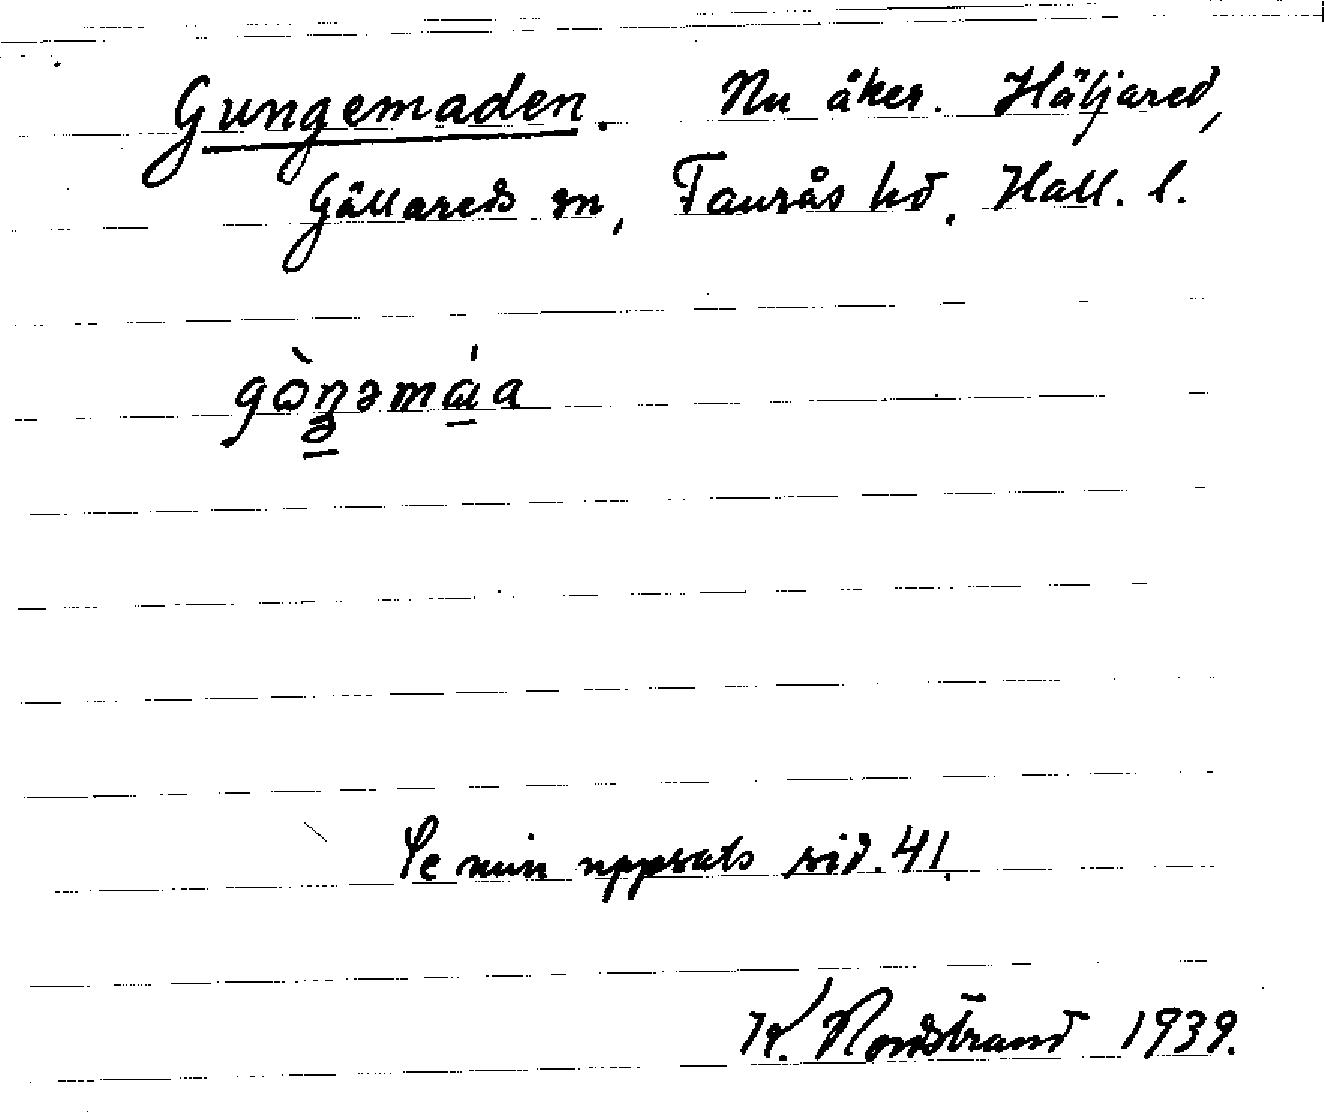 Gungemaden. Nu åker. Häljared,
Gällareds sn, Faurås hd. Hall. l.
gὼŋəmɑ́a
Se min uppsats sid. 41.
K. Nordstrand 1939.